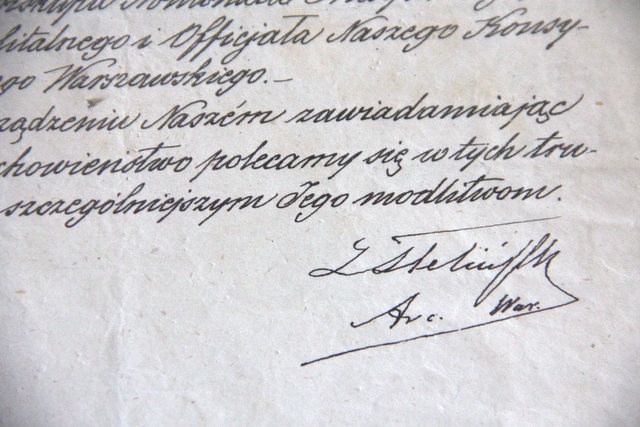 i Officjała Naszego Konsy-
go Warszawskiego.—
ządzeniu Naszém zawiadamiając
chowieństwo polecamy się w tych tru-
szczególniejszym Jego modlitwom.
Arc. War.